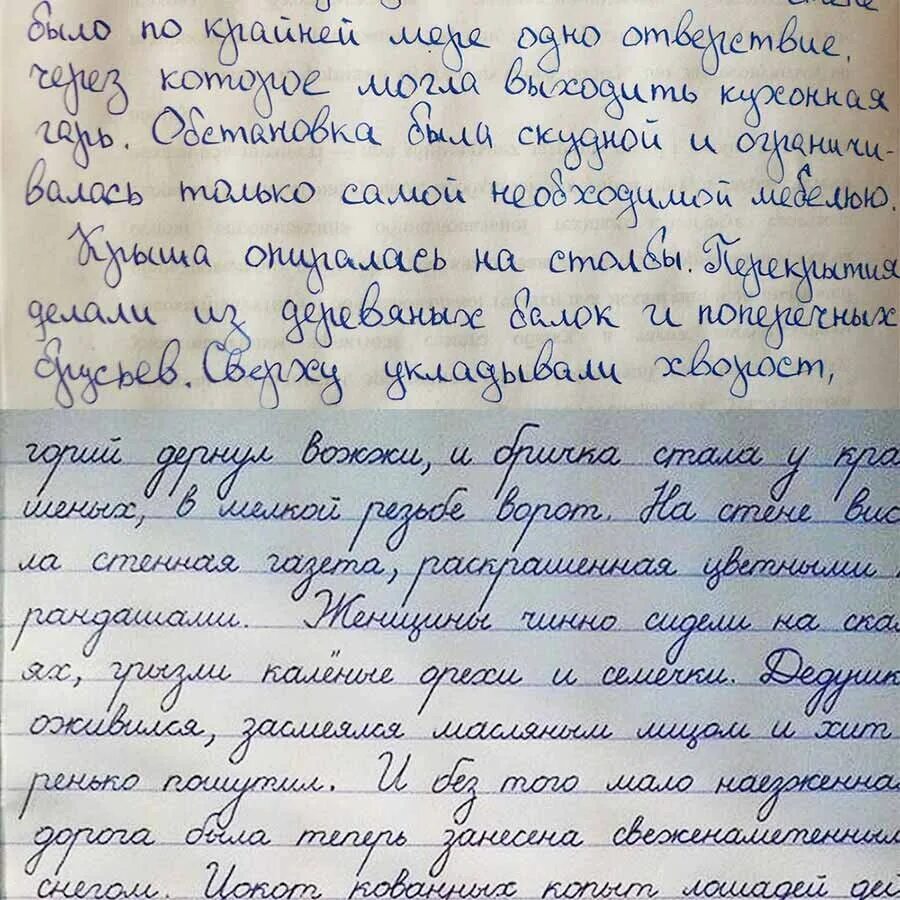 было по крайней мере одно отверствие,
через которое могла выходить кухонная
гарь. Обстановка была скудной и ограничи-
валась только самой необходимой мебелью.
Крыша опиралась на столбы. Перекрытия
делали из деревяных балок и поперечных
брусьев. Сверху укладывали хворост,
горий дернул вожжи, и бричка стала у кра
шеных, в мелкой резьбе ворот. На стене вис
ла стенная газета, раскрашенная цветными
рандашами. Женщины чинно сидели на ска
ях, грызли калёные орехи и семечки. Дедушк
оживился, засмеялся масляным лицом и хит
ренько пошутил. И без того мало наезженна
дорога была теперь занесена свеженаметенным
снегом. Цокот кованных копыт лошадей дей